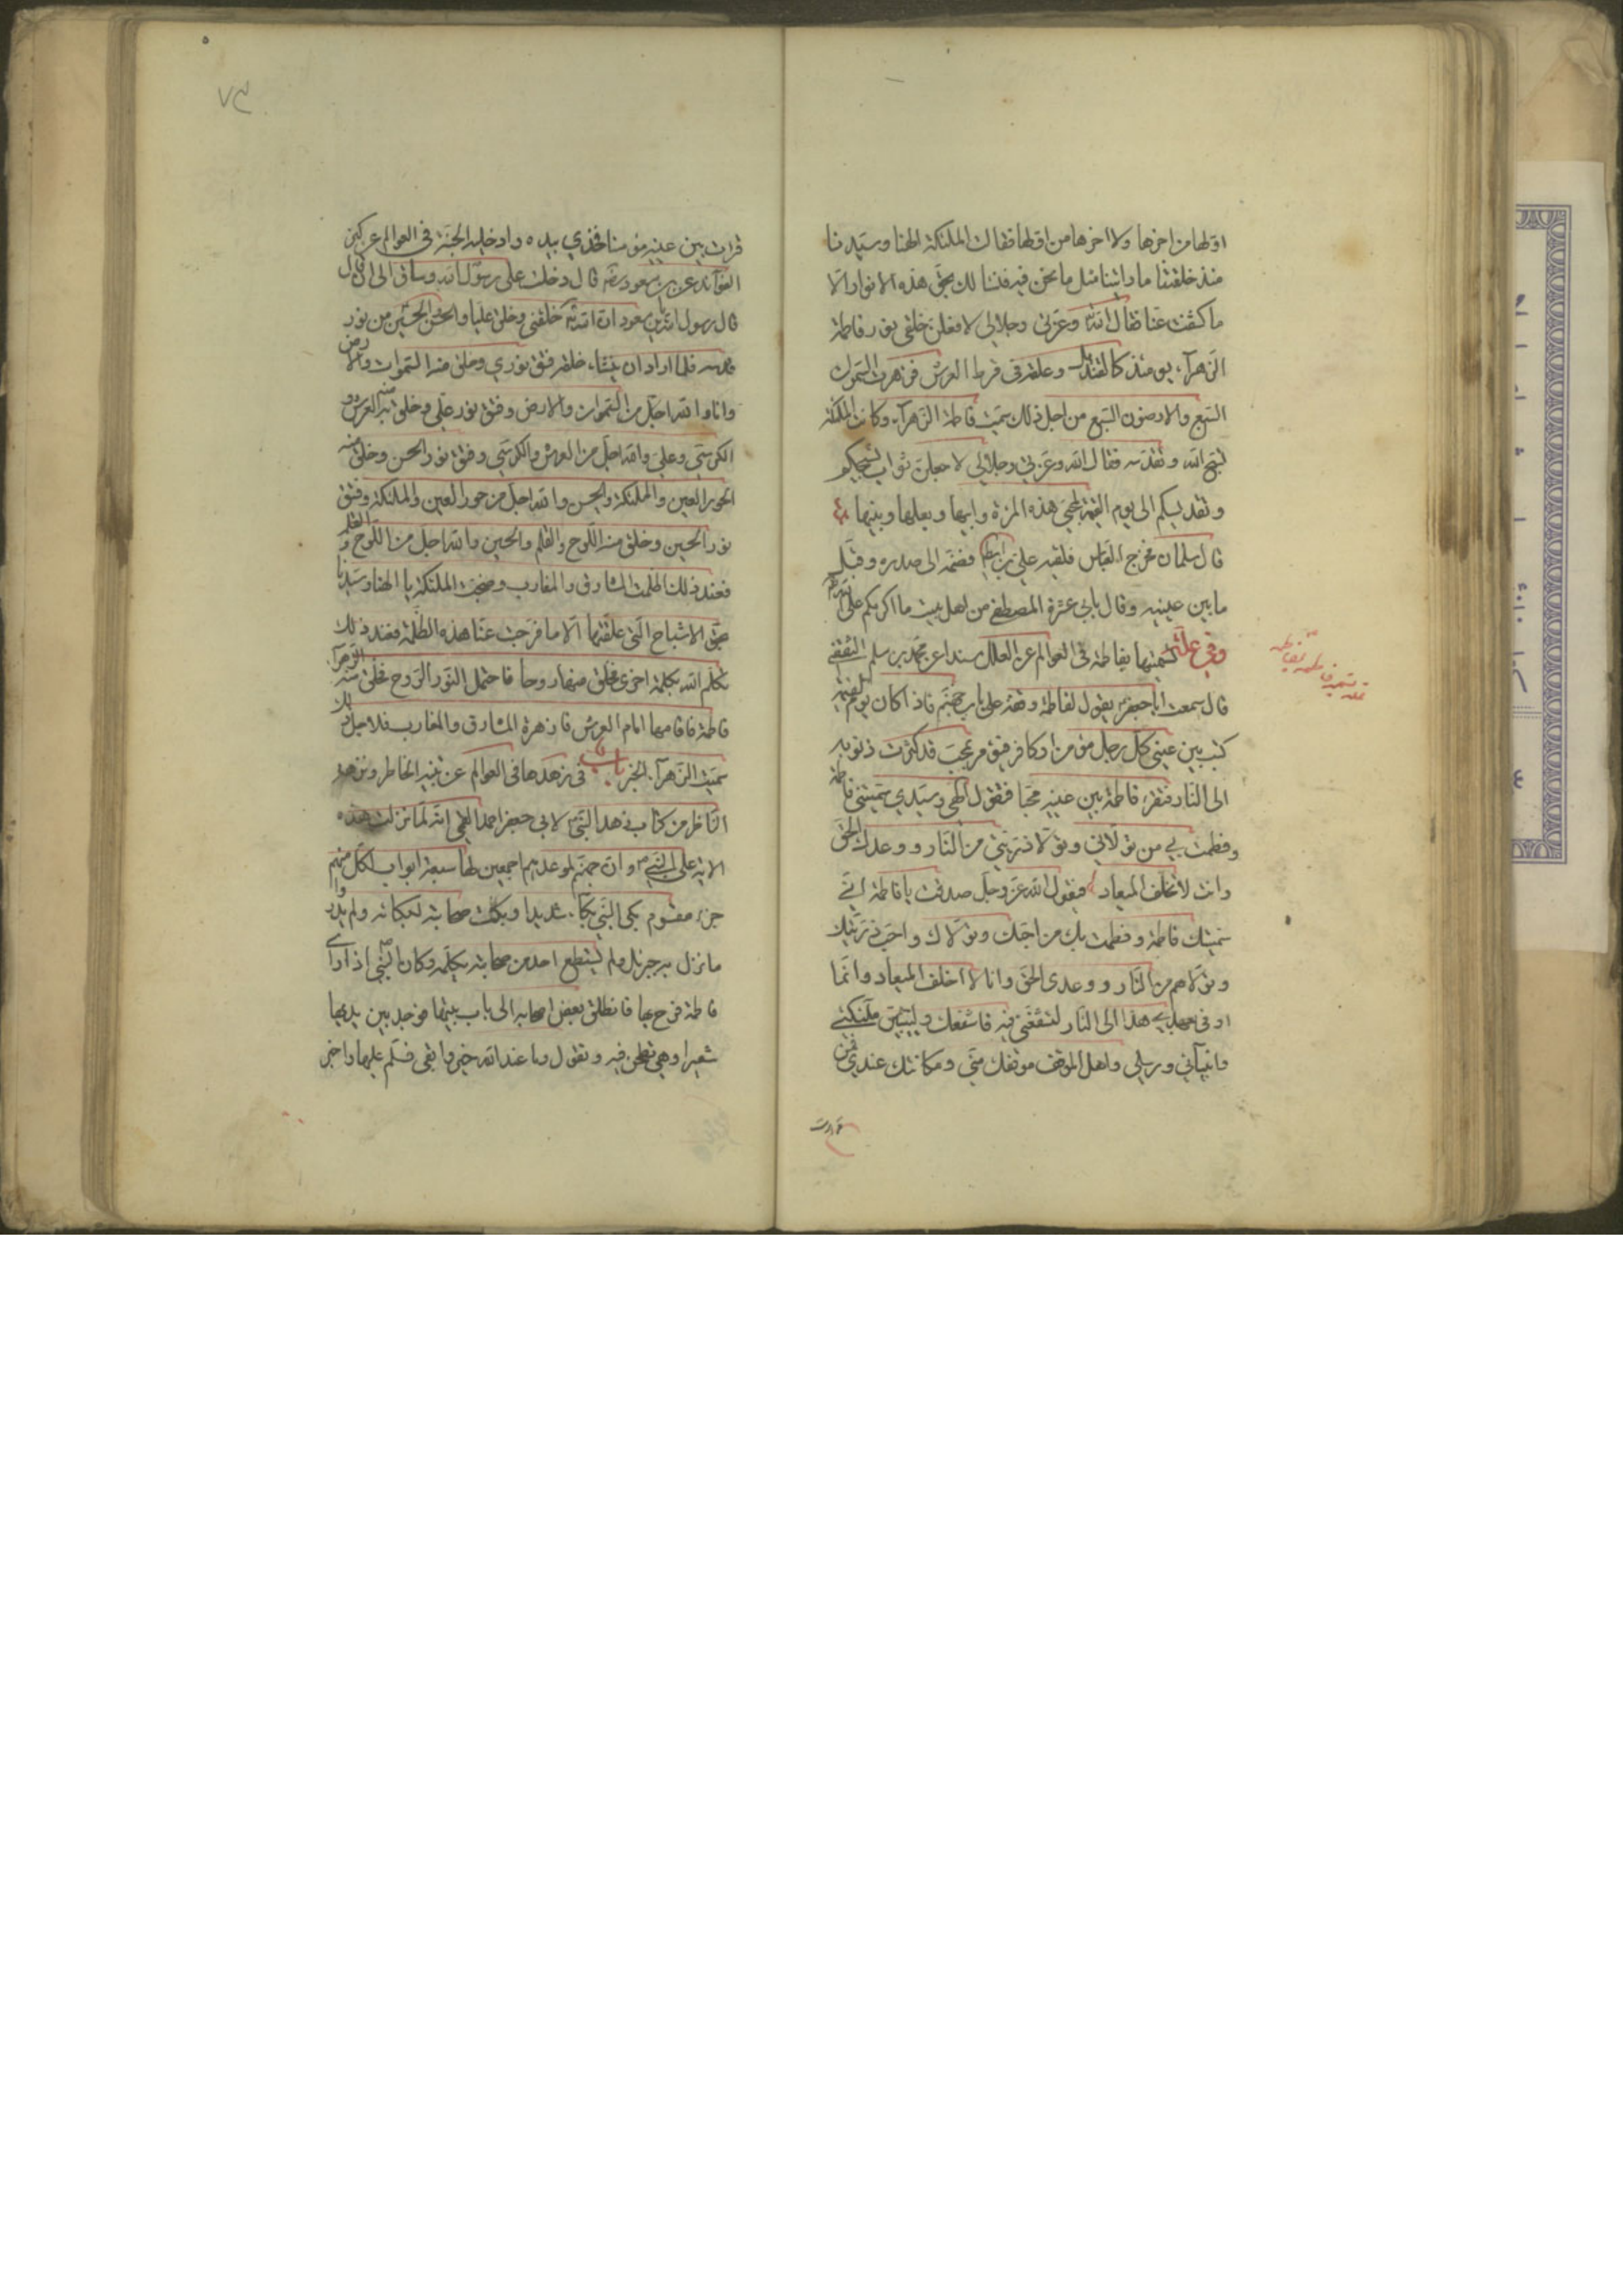 اولها من اخرها ولا اخرها من اولها فقالت الملئكة الهنا وسيدنا
منذ خلقتنا ما راينا مثل ما نحن فيه فنسالك بحق هذه الانوار الا
ما كشفت عنا فقال الله وعزتي وجلالي لافعلن فخلق نور فاطمة
الزهرآء يومئذ كالقنديل وعلقه في قرط العرش فزهرت السموات
السبع والارضون السبع من اجل ذلك سميت فاطمة الزهرآء وكانت الملئكة
تسبح الله وتقدسه فقال الله وعزتي وجلالي لاجعلن ثواب تسبيحكم
وتقديسكم الى يوم القيمة لمحبي هذه المرئة وابيها وبعلها وبنيها
قال سلمان فخرج العباس فلقيه علي بن ابيطالب فضمه الى صدره وقبل
ما بين عينيه وقال بابي عترة المصطفى من اهل بيت ما اكرمكم على الله
وفي علة تسميتها بفاطمة في العوالم عن العلل مسندا عن محمد بن مسلم الثقفي
قال سمعت ابا جعفر يقول لفاطمة وقفة على باب جهنم فاذا كان يوم القيمة
كتب بين عيني كل رجل مؤمن او كافر فيؤمر بمحب قد كثرت ذنوبه
الى النار فتقرء فاطمة بين عينيه محبا فتقول الهي وسيدي سميتني فاطمة
وفطمت بي من تولاني وتولا ذريتي من النار ووعدك الحق
وانت لا تخلف الميعاد فيقول الله عز وجل صدقت يا فاطمة اني
سميتك فاطمة وفطمت بك من احبك وتولاك واحب ذريتك
وتولاهم من النار ووعدي الحق وانا لا اخلف الميعاد وانما
امرت بعبدي هذا الى النار لتشفعي فيه فاشفعك وليتبين ملئكتي
وانبيآئي ورسلي واهل الموقف موقفك مني ومكانتك عندي فمن
قرات
علة تسميته فاطمة بفاطمة
٧٣
قرات بين عينيه مؤمنا فخذي بيده وادخليه الجنة في العوالم عن كنز
الفوآئد عن بن مسعود رضه قال دخلت على رسول الله وساق الى ان قال
قال رسول الله يابن مسعود ان الله خلقني وخلق عليا والحسن والحسين من نور
قدسه فلما اراد ان ينشاء خلقه فتق نوري وخلق منه السموات والارض
وانا والله اجل من السموات والارض وفتق نور علي وخلق منه العرش و
الكرسي وعلي والله اجل من العرش والكرسي وفتق نور الحسن وخلق منه
الحور العين والملئكة والحسن والله اجل من حور العين والملئكة وفتق
نور الحسين وخلق منه اللوح والقلم والحسين والله اجل من اللوح والقلم
فعند ذلك اظلمت المشارق والمغارب وضجت الملئكة يا الهنا وسيدنا
بحق الاشباح التي خلقتها الا ما فرجت عنا هذه الظلمة فعند ذلك
تكلم الله بكلمة اخرى فخلق منها روحا فاحتمل النور الروح فخلق منه الزهرآء
فاطمة فاقامها امام العرش فازهرة المشارق والمغارب فلاجل ذلك
سميت الزهرآء الخبر باب في زهدها في العوالم عن تنبيه الخاطر ونزهة
الناظر من كتاب زهد النبي لابي جعفر احمد القمي انه لما نزلت هذه
الاية على النبي وان جهنم لموعدهم اجمعين لها سبعة ابواب لكل منهم
جزء مقسوم بكى النبي بكآء شديدا وبكت صحابته لبكائه ولم يدروا
ما نزل به جبرئيل ولم يستطع احد من صحابته بكلمه وكان النبي اذا راى
فاطمة فرح بها فانطلق بعض اصحابه الى باب بيتها فوجد بين يديها
شعيرا وهي تطحن فيه وتقول وما عند الله خير وابقى فسلم عليها واخبر